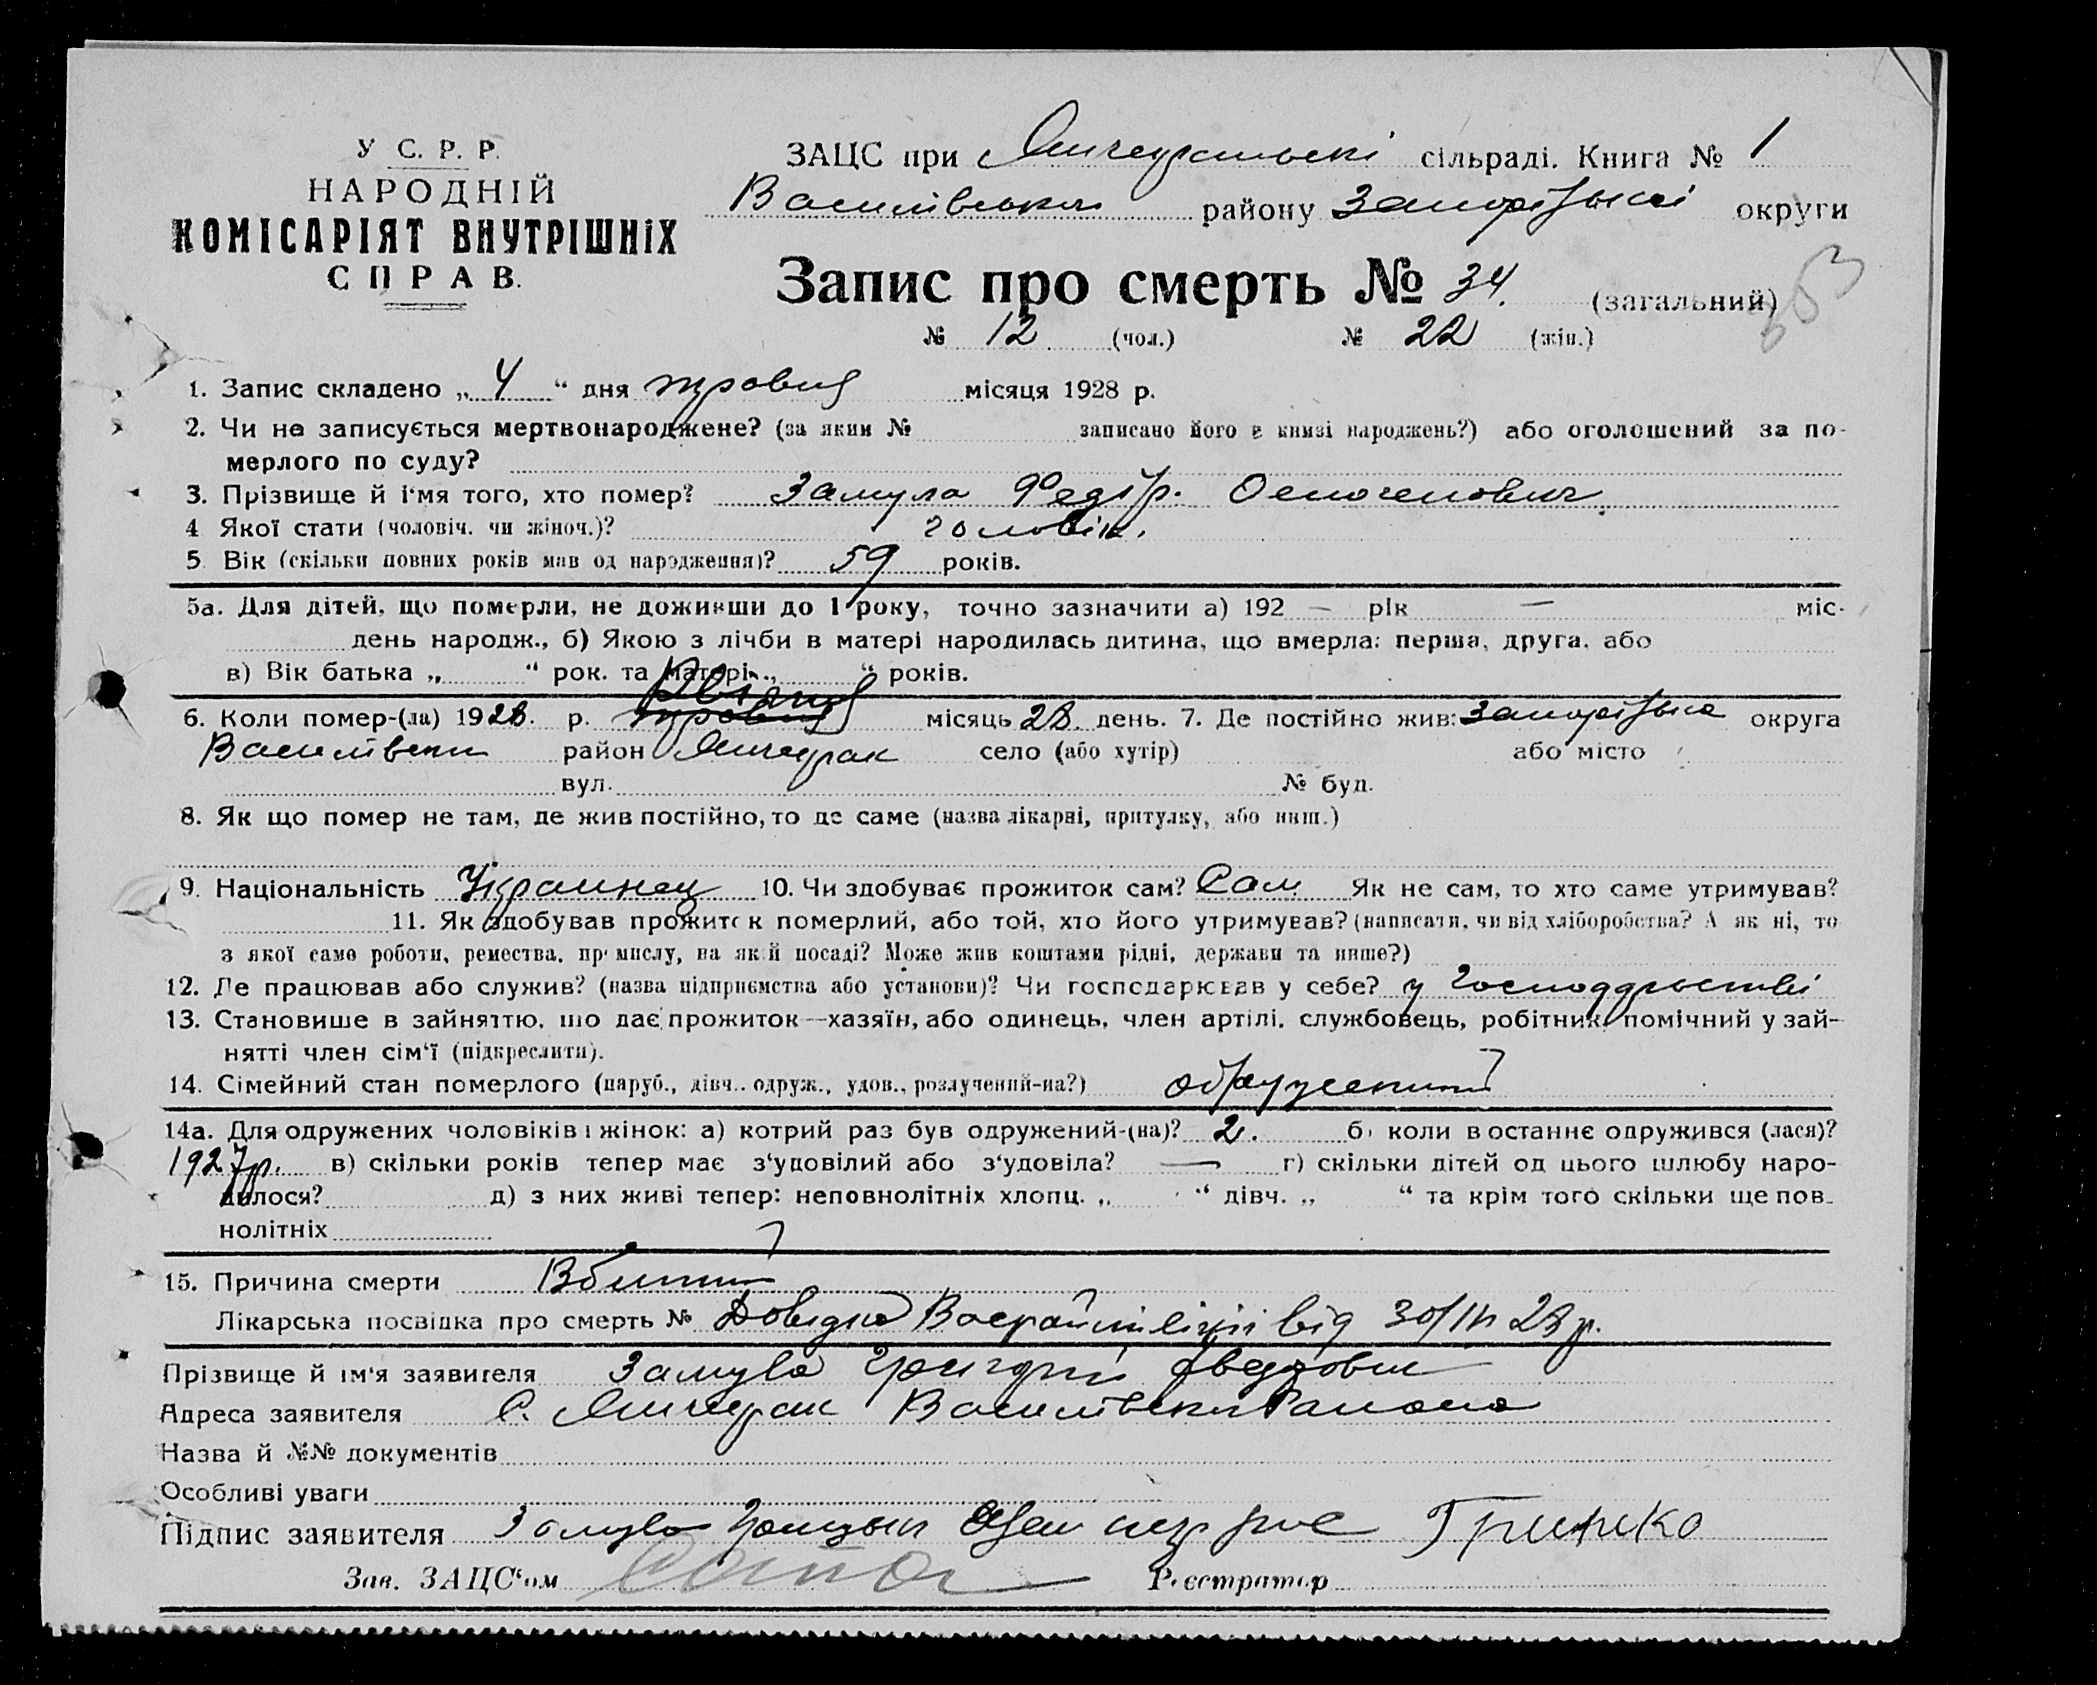 У С. Р. Р.
НАРОДНІЙ
КОМІСАРІЯТ ВНУТРІШНІХ
СПРАВ.
ЗАЦС при Янчекракські сільраді. Книга № 1
Василівського району Запорізької округи
Запис про смерть № 34. (загальний)
№ 12 (чол.) № 22 (жін.)
1. Запис складено „ 4 “ дня травня місяця 1928 р.
2. Чи не записується мертвонароджене? (за яким № записано його в книзі народжень?) або оголошений за по-
мерлого по суду?
3. Прізвище й і'мя того, хто помер? Замула Федір.
4 Якої стати (чоловіч. чи жіноч.)? чоловік.
5. Вік (скільки повних років мав од народження)? 59 років.
5а. Для дітей, що померли, не доживши до 1 року, точно зазначити а) 192 — рік — міс-
день народж., б) Якою з лічби в матері народилась дитина, що вмерла: перша, друга, або
в) Вік батька „ “ рок. та матері „ “ років.
6. Коли помер-(ла) 1928. р. травня Квітня місяць 28. день. 7. Де постійно жив: Запорізька округа
Василівськи район Янчекрак село (або хутір) або місто
вул. № буд.
8. Як що помер не там, де жив постійно, то де саме (назва лікарні, притулку, або инш.)
9. Національність Украинец 10. Чи здобуває прожиток сам? Сам Як не сам, то хто саме утримував?
11. Як здобував прожиток померлий, або той, хто його утримував? (написати, чи від хліборобства? А як ні, то
з якої саме роботи, ремества, промислу, на якій посаді? Може жив коштами рідні, держави та инше?)
12. Де працював або служив? (назва підприємства або установи)? Чи господарював у себе? у
13. Становище в зайняттю, що дає прожиток—хазяїн, або одинець, член артілі, службовець, робітник, помічний у зай-
нятті член сім'ї (підкреслити).
14. Сімейний стан померлого (паруб., дівч., одруж., удов., розлучений-на?) одружений
14а. Для одружених чоловіків і жінок: а) котрий раз був одружений-(на)? 2. б) коли в останнє одружився (лася)?
1927р. в) скільки років тепер має з'удовілий або з'удовіла? — г) скільки дітей од цього шлюбу наро-
дилося? д) з них живі тепер: неповнолітніх хлопц. „ “ дівч. „ “ та крім того скільки ще пов-
нолітніх
15. Причина смерти Вбитий
Лікарська посвідка про смерть № Довідка Васрайміліції від 30/IV 28 р.
Прізвище й ім'я заявителя Замула Григорій Федорович
Адреса заявителя С. Янчекрак Василівського Району
Назва й №№ документів
Особливі уваги
Підпис заявителя Замула Гринько
Зав. ЗАЦС'ом Реєстратор